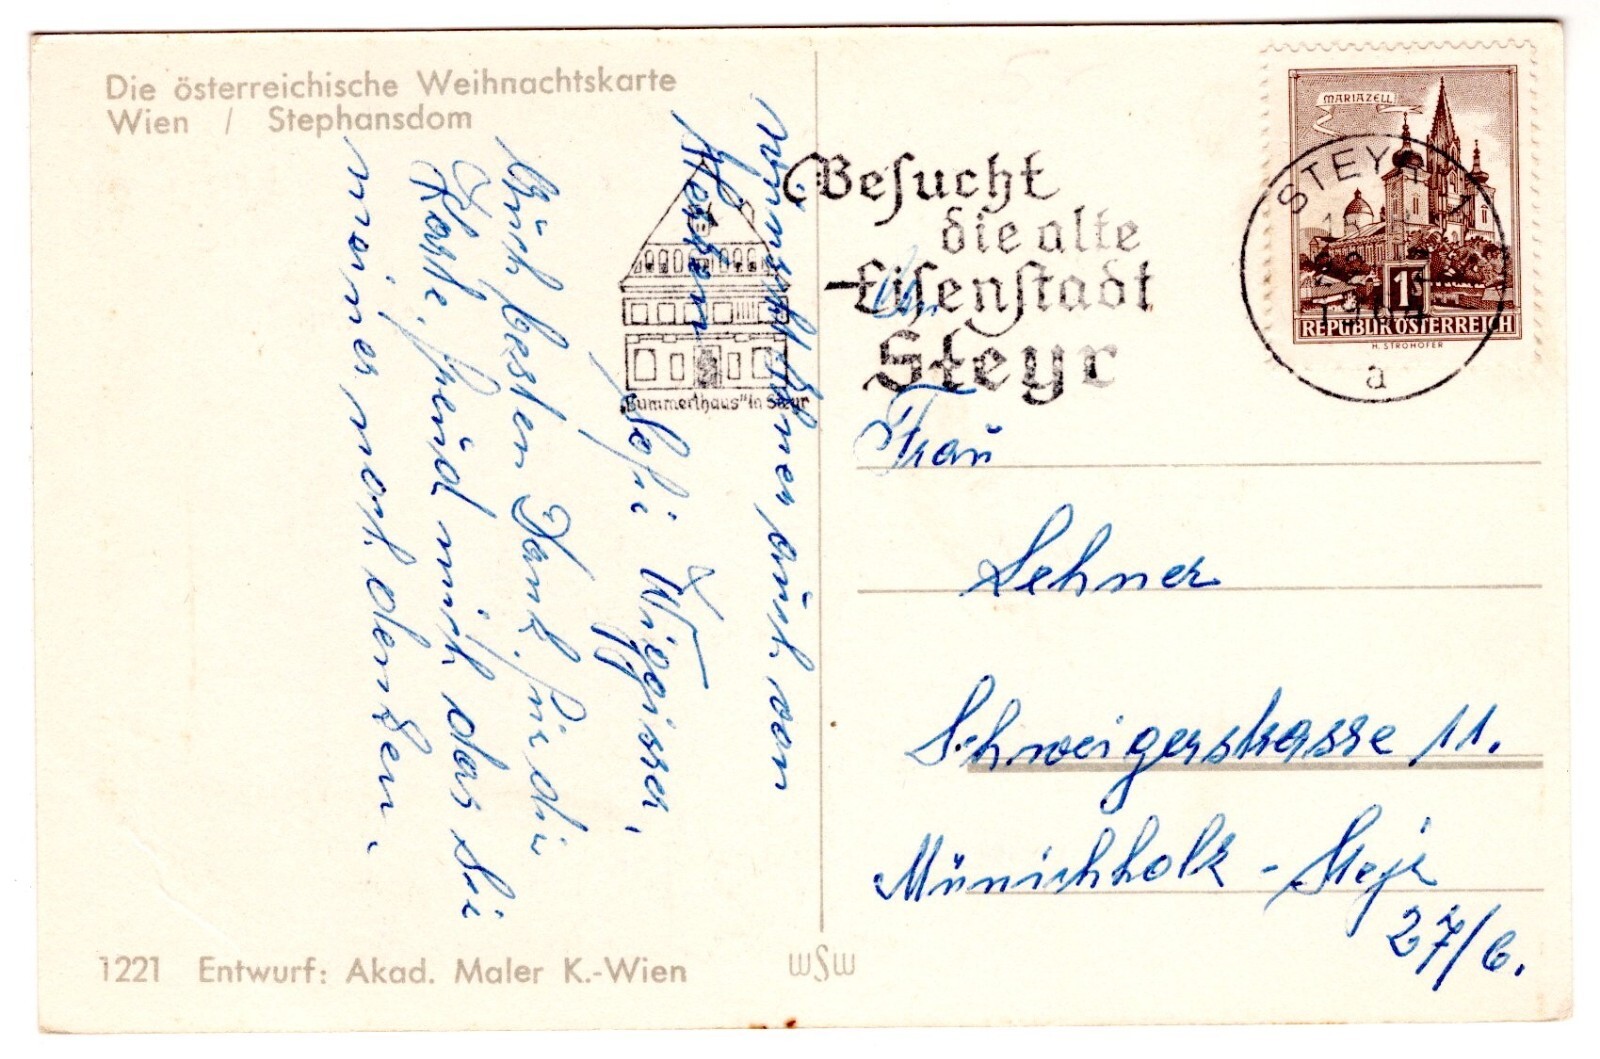 Die österreichische Weihnachtskarte
Wien / Stephansdom
wünscht Ihnen auch von
Herzen
Sefi Wigisser,
Auch besten Dank für die
Karte, freud mich das Sie
meiner noch denken.
1221 Entwurf: Akad. Maler K.-Wien
wSw
Besucht
die alte
Eisenstadt
Steyr
"Bummerlhaus" in Steyr
STEYR 1
1964
a
MARIAZELL
1S
REPUBLIK ÖSTERREICH
H. STROHOFER
An
Frau
Lehner
Schweigerstrasse 11.
Münichholz - Steyr
27/6.